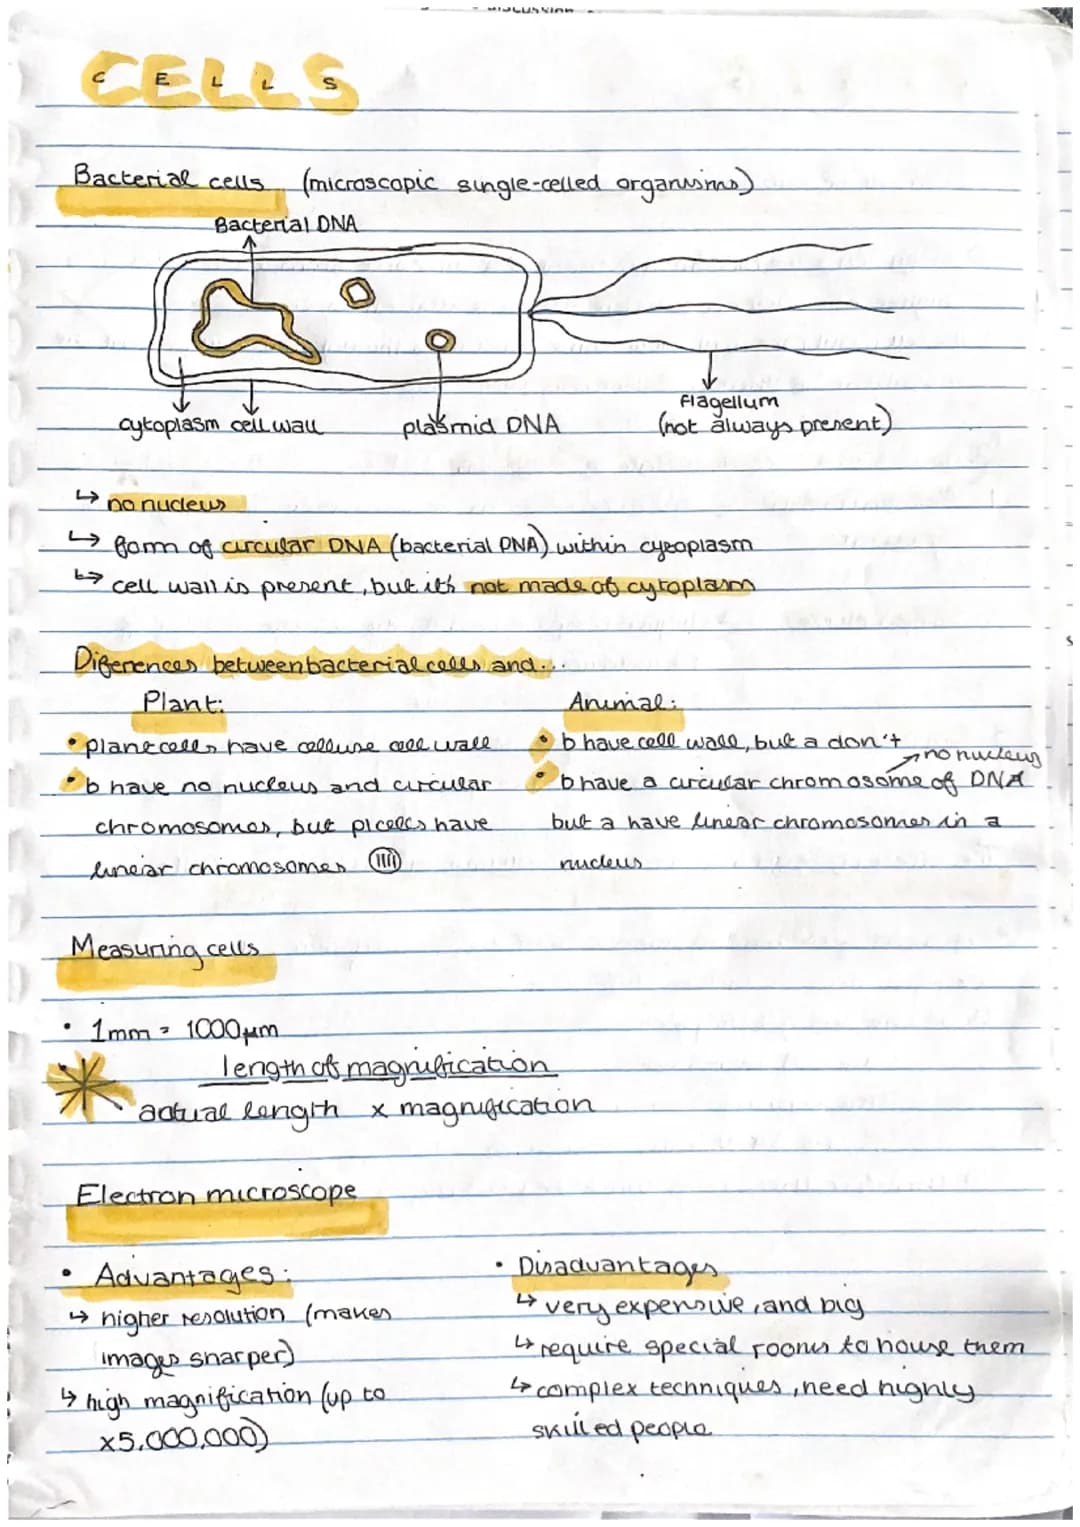 DISCUSSION
CELLS
C E L L S
Bacterial cells (microscopic single-celled organisms)
Bacterial DNA
cytoplasm cell wall plasmid DNA
Flagellum
(not always present)
↳ no nucleus
↳ form of circular DNA (bacterial DNA) within cytoplasm
↳ cell wall is present, but it's not made of cytoplasm
Diferences between bacterial cells and...
Plant:
• plant cells have celluse cell wall
• b have no nucleus and circular
chromosomes, but pl cells have
linear chromosomes
Animal:
• b have cell wall, but a don't
→ no nucleus
• b have a circular chromosome of DNA
but a have linear chromosomes in a
nucleus
Measuring cells
• 1mm = 1000µm
length of magnification
actual length x magnification
Electron microscope
• Advantages:
↳ higher resolution (makes
images sharper)
↳ high magnification (up to
x5,000,000)
• Disadvantages
↳ very expensive, and big
↳ require special rooms to house them
↳ complex techniques, need highly
skilled people